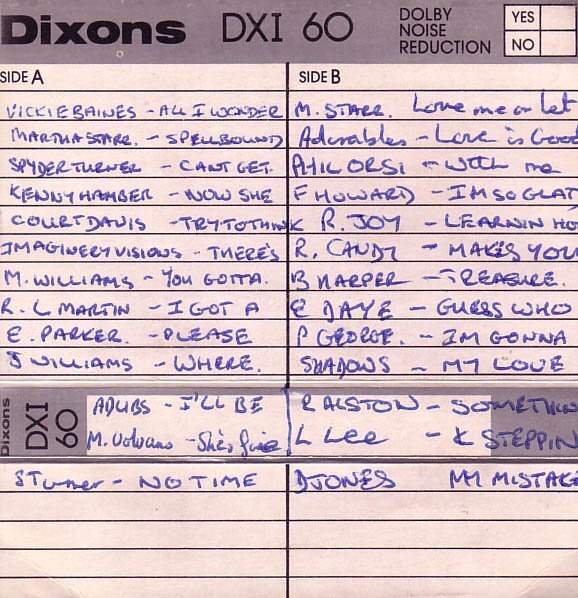 Dixons DXI 60 DOLBY NOISE REDUCTION YES NO
SIDE A
VICKIE BAINES - ALL I WONDER
MARTHA STARR. - SPELLBOUND
SPYDER TURNER - CANT GET.
KENNY HAMBER - NOW SHE
COURT DAVIS - TRY TO THINK
IMAGINERY VISIONS - THERE'S
M. WILLIAMS - YOU GOTTA.
R. L MARTIN - I GOT A
E. PARKER. - PLEASE
J WILLIAMS - WHERE.
SIDE B
M. STARR. Love me or let
Adorables - Love is Good
PHIL ORSI - With me
F HOWARD - IM SO GLAD
R. JOY - LEARNIN HO
R. CANDY - MAKES YOU
B HARPER - TREASURE.
E DAYE - GUESS WHO
P GEORGE. - IM GONNA
SHADOWS - MY LOVE
Dixons DXI 60
ADLIBS - I'LL BE
M. Volcans - She's fine
R ALSTON - SOMETHIN
L Lee - K STEPPIN
S Turner - NO TIME
D JONES MY MISTAKE